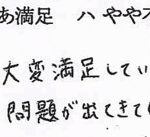 あ満足 ハ やや
大変満足してい
問題が出てきて